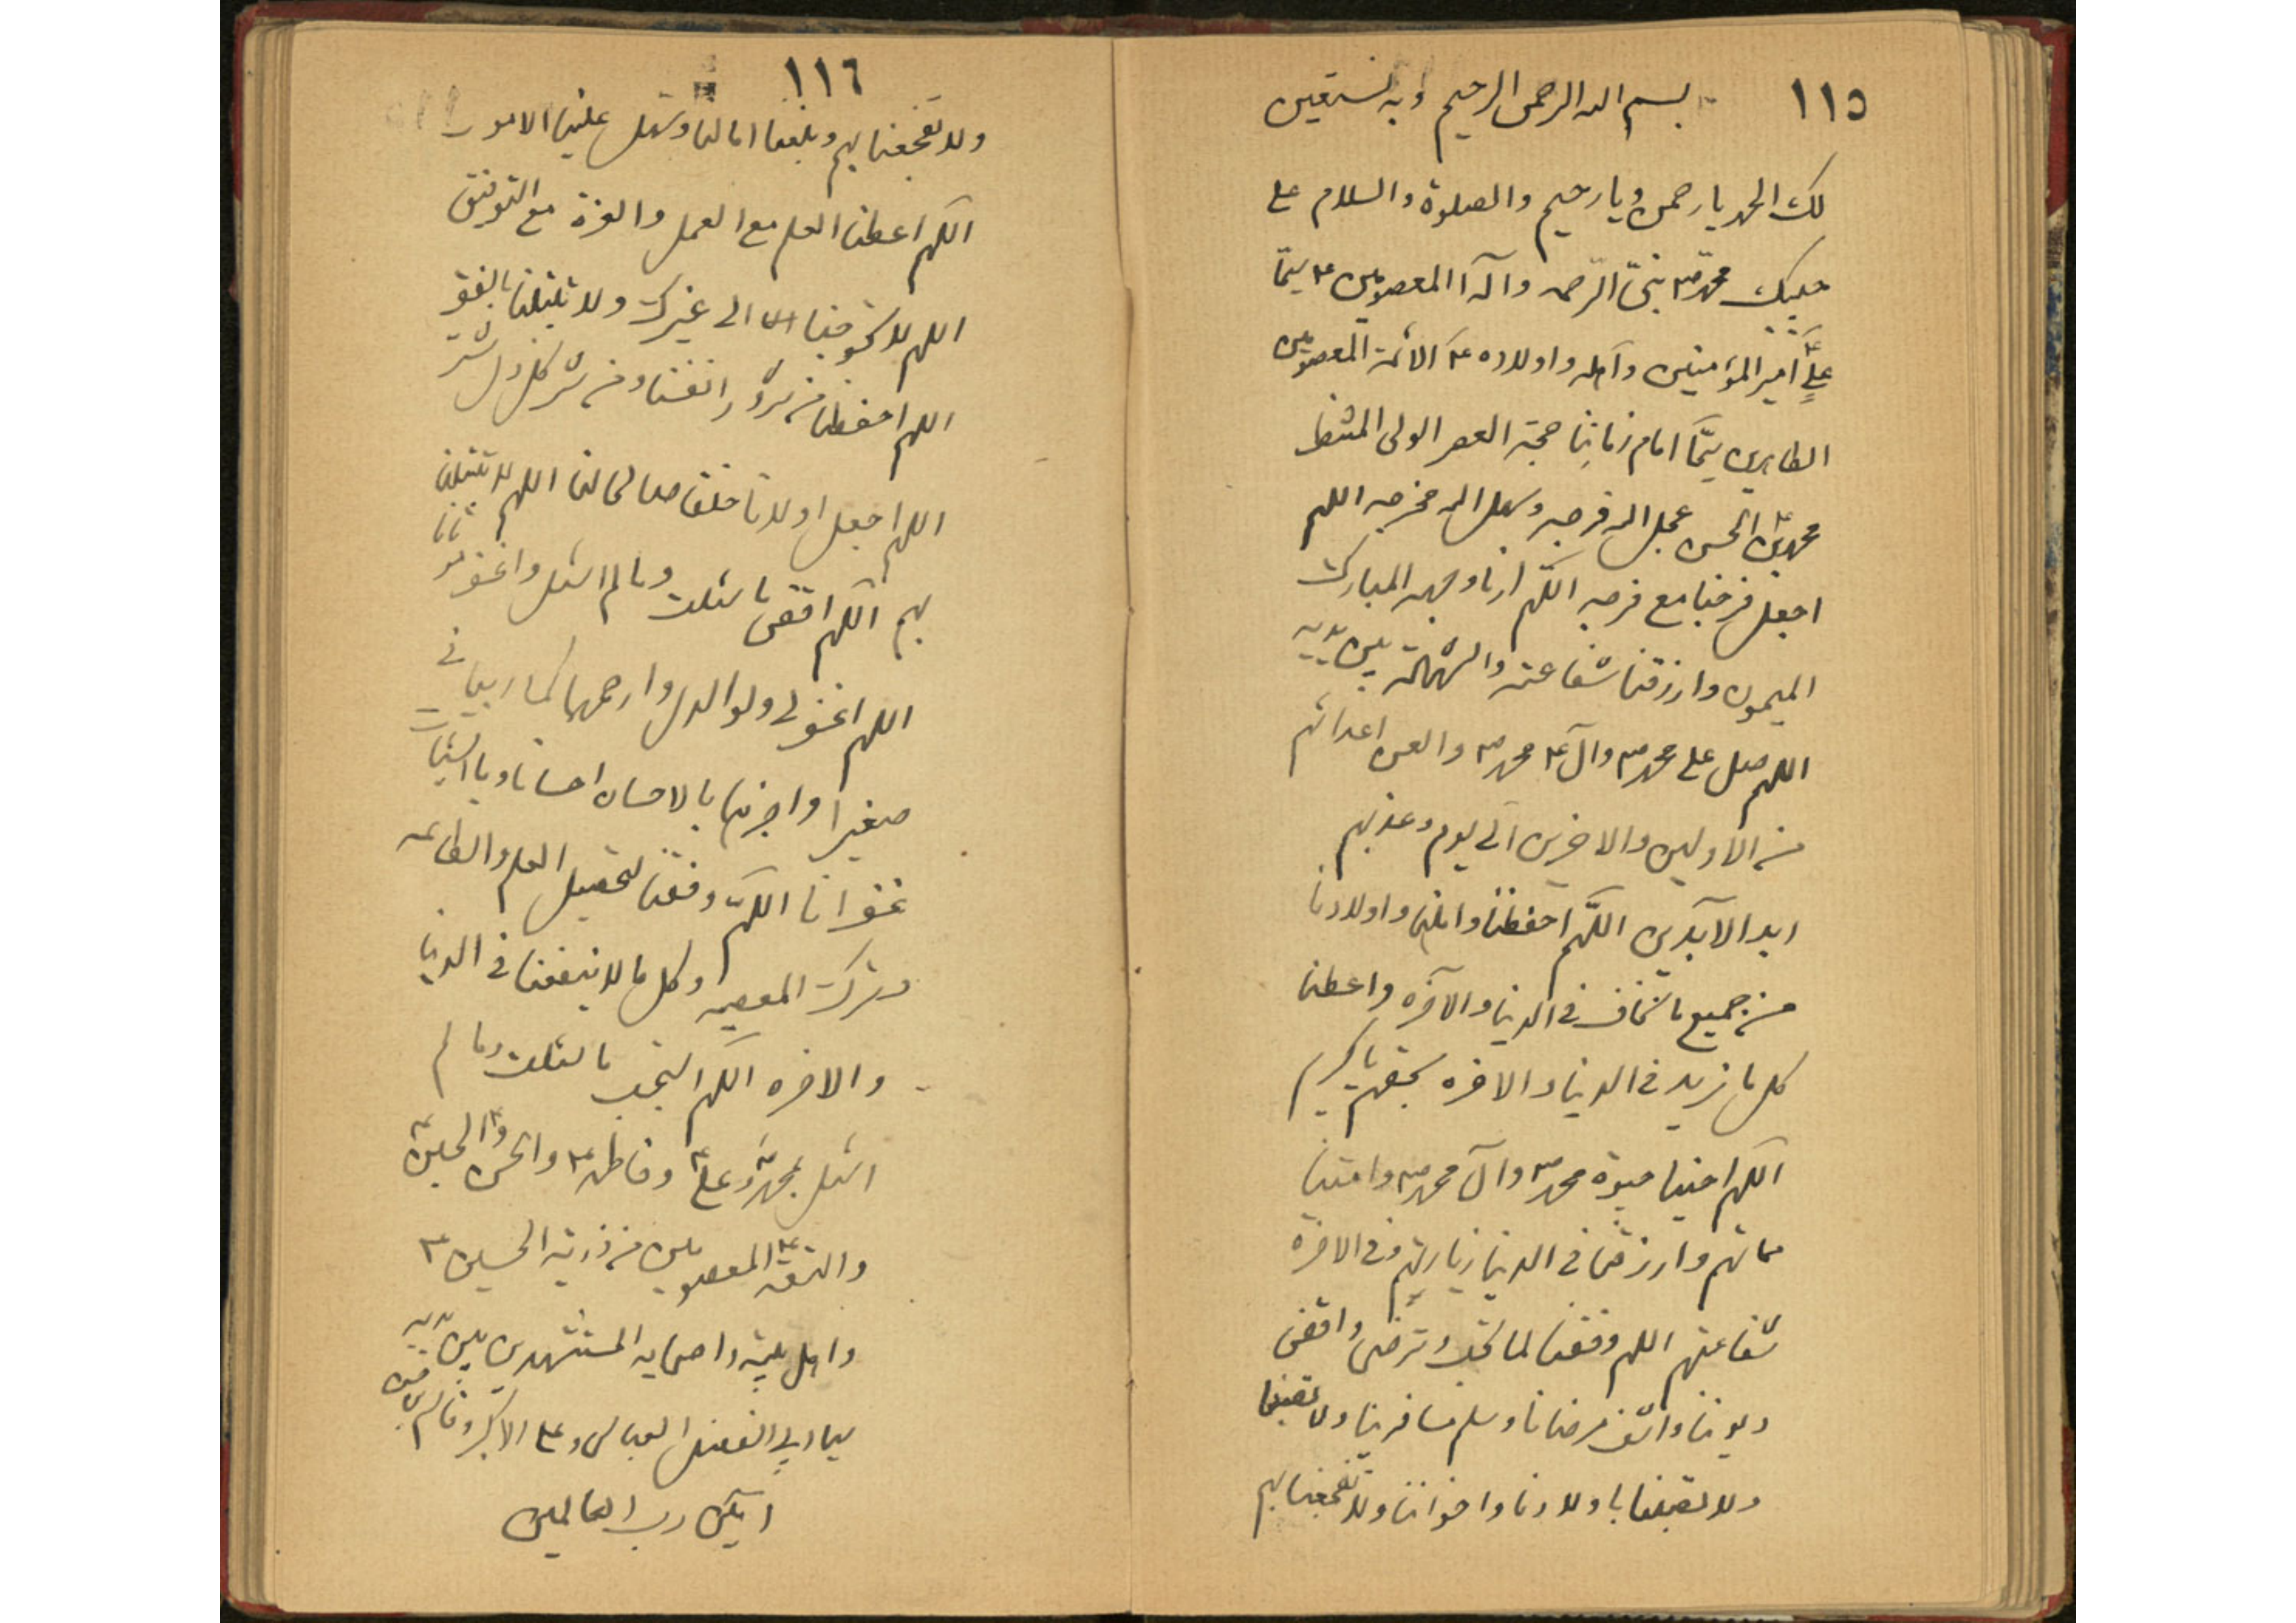 ١١٥
بسم الله الرحمن الرحیم وبه نستعین
لک الحمد یا رحمن ویا رحیم والصلوة والسلام علی
حبیبک محمد ص نبی الرحمه وآله المعصومین ع سیما
علی ع امیر المؤمنین وآله واولاده ع الائمة المعصومین
الطاهرین سیما امام زماننا حجة العصر الولی المنتظر
محمد بن الحسن ع عجل الله فرجه وسهل الله مخرجه اللهم
اجعل فرجنا مع فرجه اللهم ارنا وجهه المبارک
المیمون وارزقنا شفاعته والشهادة بین یدیه
اللهم صل علی محمد ص وآل ع محمد ص والعن اعدائهم
من الاولین والاخرین الی یوم وعذبهم
ابد الآبدین اللهم احفظنا واهلنا واولادنا
من جمیع ما نخاف فی الدنیا والآخره واعطنا
کل ما نرید فی الدنیا والاخره بحقهم یا کریم
اللهم احینا حیوة محمد ص وآل محمد ص وامتنا
مماتهم وارزقنا فی الدنیا زیارتهم وفی الاخرة
شفاعتهم اللهم وفقنا لما تحب وترضی واقض
دیوننا واشف مرضانا وسلم مسافرینا ولا تصبنا
ولا تصبنا باولادنا واخواننا ولا تفجعنا بهم
١١٦
ولا تفجعنا بهم وبلغنا امالنا وسهل علینا الامور
اللهم اعطنا العلم مع العمل والعزة مع التوفیق
اللهم لا تحوجنا الی غیرک ولا تبتلنا بالفقر
اللهم احفظنا من شرور انفسنا ومن شر کل ذی شر
اللهم اجعل اولادنا خلفا صالحا لنا اللهم لا تبتلنا
بهم اللهم اقض ما سئلت وما لم اسئل واغفر
اللهم اغفر لی ولوالدی وارحمهما کما ربیانی
صغیرا واجزهما بالاحسان احسانا وبالسیئات
غفرانا اللهم وفقنا لتحصیل العلم والطاعه
وترک المعصیه وکل ما لا ینفعنا فی الدنیا
والاخره اللهم استجب ما سئلت وما لم
اسئل بمحمد ص وعلی ع وفاطمه ع والحسن والحسین ع
والتسعة ع المعصومین من ذریة الحسین ع
واهل بیته واصحابه المستشهدین بین یدیه
سیما ابی الفضل العباس وعلی الاکبر وقاسم بن حسن
امین رب العالمین